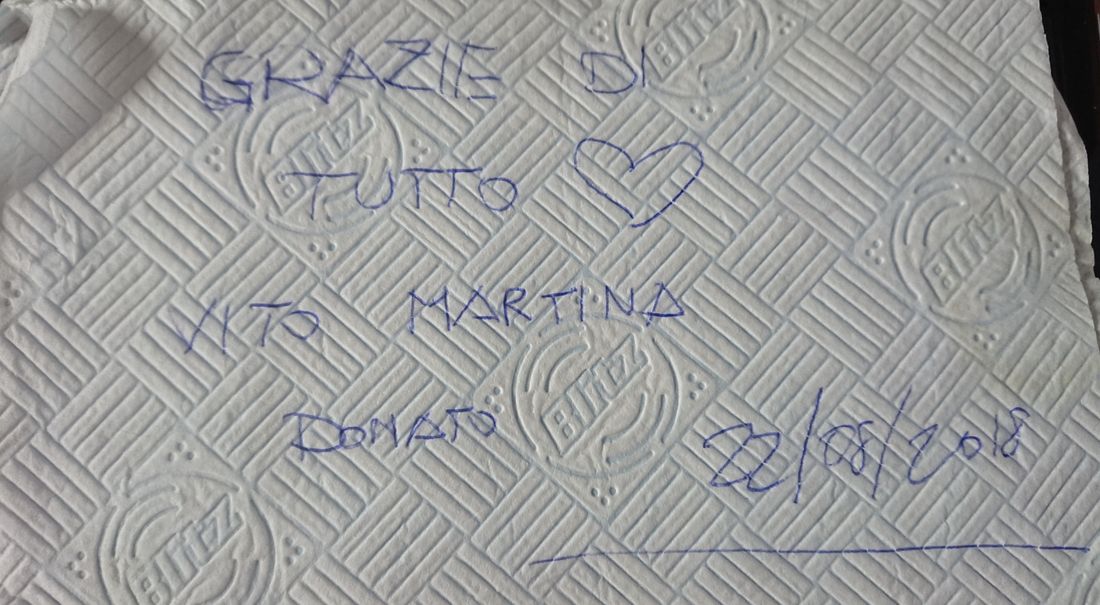 GRAZIE DI
TUTTO ♡
VITO MARTINA
DONATO 22/08/2018
Blitz
Blitz
Blitz
Blitz
Blitz